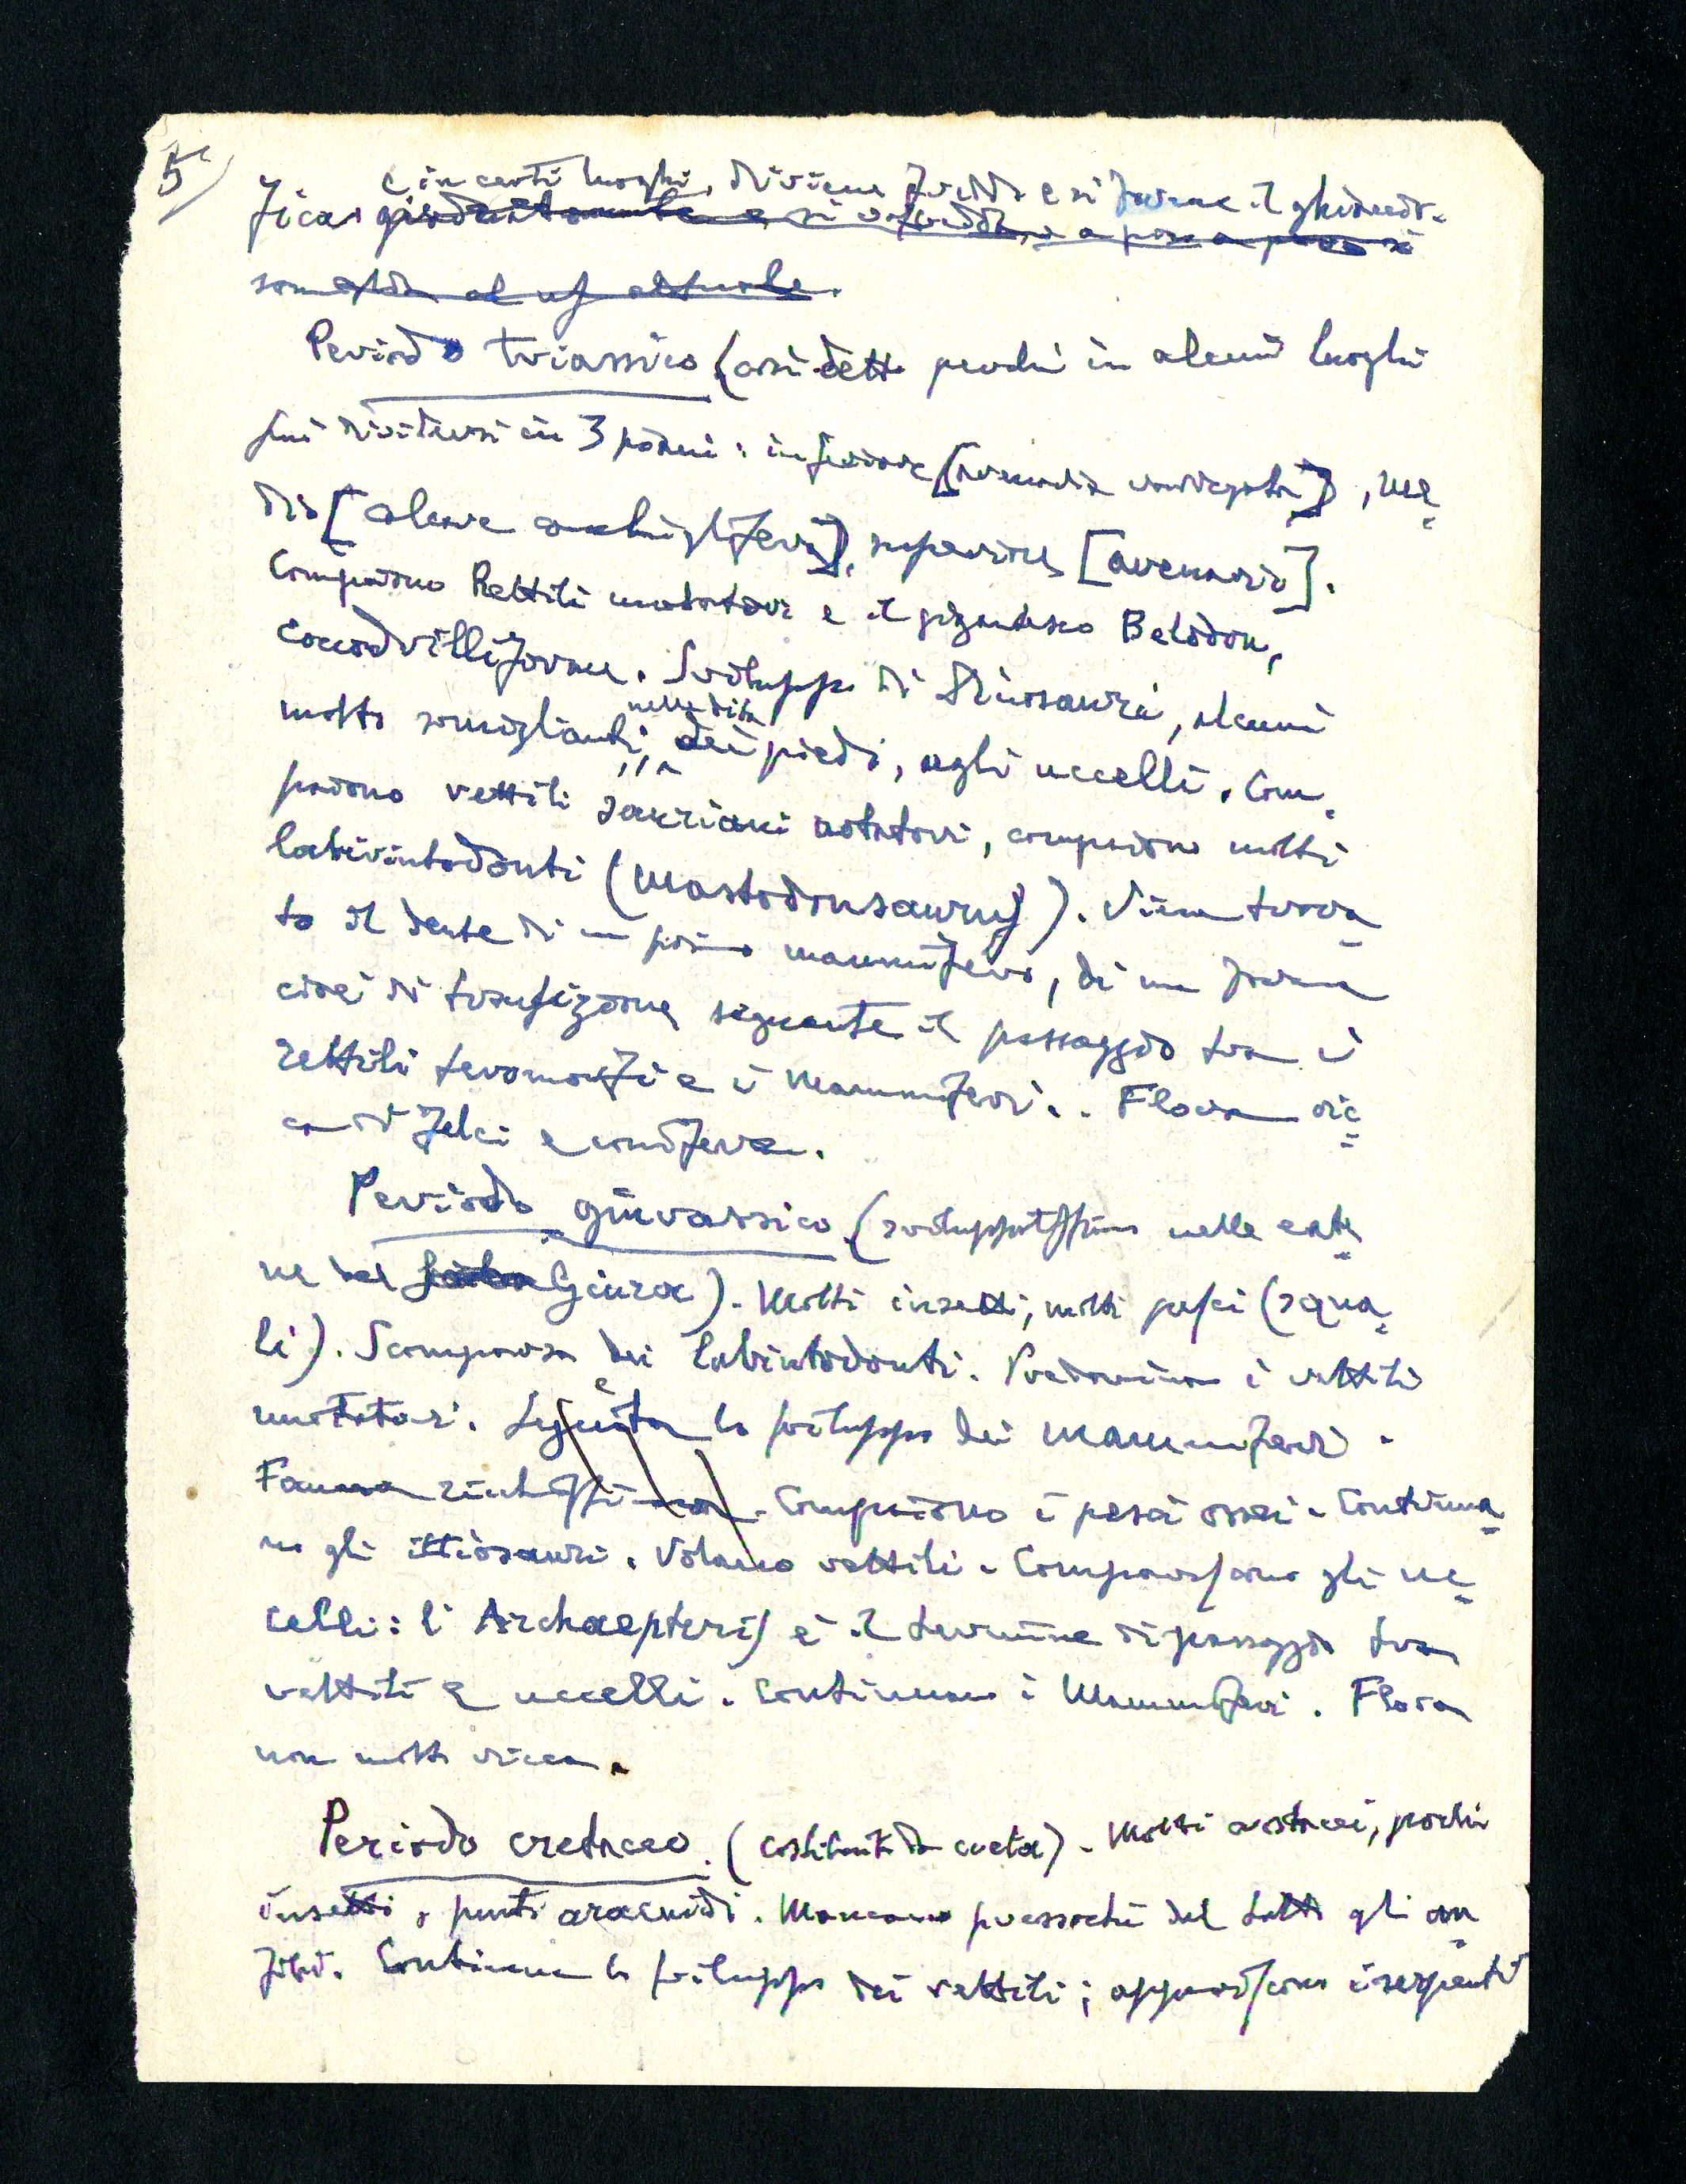 5
e in certi luoghi, diviene fredda e si forma il ghiaccio.
fica, gradatamente e si raffredda, e a poco a poco si
somiglia al  attuale.
Periodo triassico (così detto perché in alcuni luoghi
può dividersi in 3 piani: inferiore [arenaria variegata], me
dio [calcare conchiglifero], superiore [arenaria].
Compaiono Rettili nuotatori e il gigantesco Belodon,
coccodrilliforme. Sviluppo di Dinosauri, alcuni
nelle dita
molto somiglianti, dei piedi, agli uccelli. Com
paiono rettili sauriani notatori, compaiono molti
labirintodonti (Mastodonsaurus). Viene trova
to il dente di un primo mammifero, di una forma
cioè di transizione segnante il passaggio tra i
rettili teromorfi e i Mammiferi. Flora ric
ca di felci e conifere.
Periodo giurassico (sviluppatissimo nelle cate
ne del Giura). Molti insetti, molti pesci (squa
li). Scomparsa dei labirintodonti. Predominano i rettili
nuotatori. Seguita lo sviluppo dei Mammiferi.
Fauna ricchissima. Compaiono i pesci ossei. Continua
no gli ittiosauri. Volano rettili. Compariscono gli uc
celli: l'Archaepteris è il termine di passaggio tra
rettili e uccelli. Continuano i Mammiferi. Flora
non molto ricca.
Periodo cretaceo. (costituito da creta). Molti crostacei, pochi
insetti, punti aracnidi. Mancano pressoché del tutto gli an
fibi. Continua lo sviluppo dei rettili; appariscono i serpenti